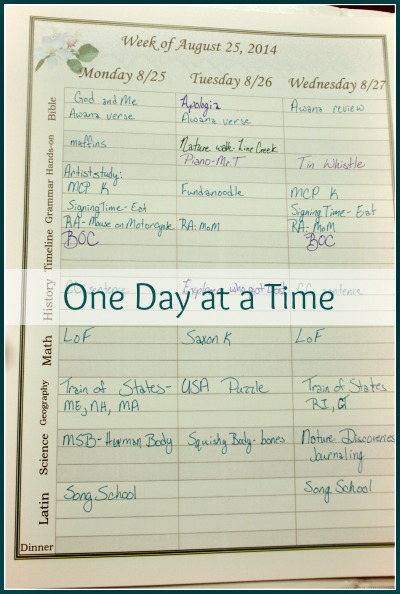 Week of August 25, 2014
Monday 8/25 Tuesday 8/26 Wednesday 8/27
Bible
God and Me Apologia Awana review
Awana verse Awana verse
Hands-on
muffins Nature walk-Line Creek
Piano-Mr. T Tin Whistle
Grammar
Artist study:
MCP K Fundanoodle MCP K
Signing Time-Eat Signing Time-Eat
Timeline
RA-Mouse on Motorcycle RA: MoM RA-MoM
BOC BOC
History
sentence CC sentence
One Day at a Time
Math
LoF Saxon K LoF
Geography
Train of States- USA Puzzle Train of States
ME, NH, MA RI, CT
Science
MSB-Human Body Squishy Body-bones Nature Discoveries
Journaling
Latin
Song School Song School
Dinner